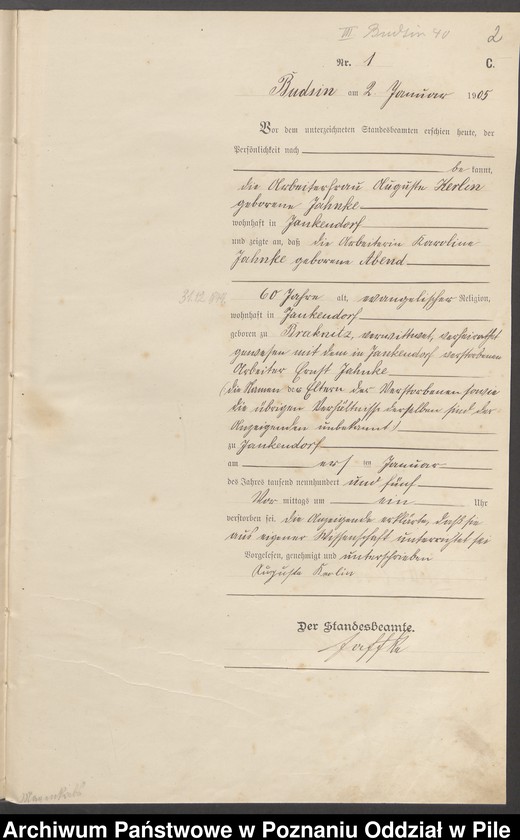 III Budsin 40
2
Nr. 1 C.
Budsin am 2 Januar 1905
Vor dem unterzeichneten Standesbeamten erschien heute, der
Persönlichkeit nach
be kannt,
die Arbeiterfrau Auguste Kerlin
geborene Jahnke
wohnhaft in Jankendorf
und zeigte an, daß die Arbeiterin Karoline
Jahnke geborene Abend
60 Jahre alt, evangelischer Religion,
wohnhaft in Jankendorf
geboren zu verwittwet, verheirathet
gewesen mit dem in Jankendorf verstorbenen
Arbeiter Ernst Jahnke
(die Namen der Eltern der Verstorbenen sowie
die übrigen Verhältnisse derselben sind der
Anzeigenden unbekannt)
zu Jankendorf
am ers ten Januar
des Jahres tausend neunhundert und fünf
Vor mittags um ein Uhr
verstorben sei. die Anzeigende erklärte, daß sie
aus eigener Wissenschaft unterrichtet sei
Vorgelesen, genehmigt und unterschrieben
Auguste Kerlin
Der Standesbeamte.
Archiwum Państwowe w Poznaniu Oddział w Pile